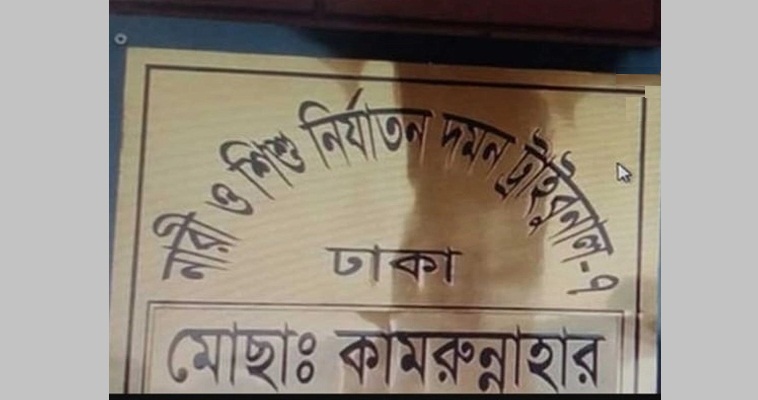 নারী ও শিশু নির্যাতন দমন ট্রাইবুনাল-৭
ঢাকা
মোছাঃ কামরুন্নাহার